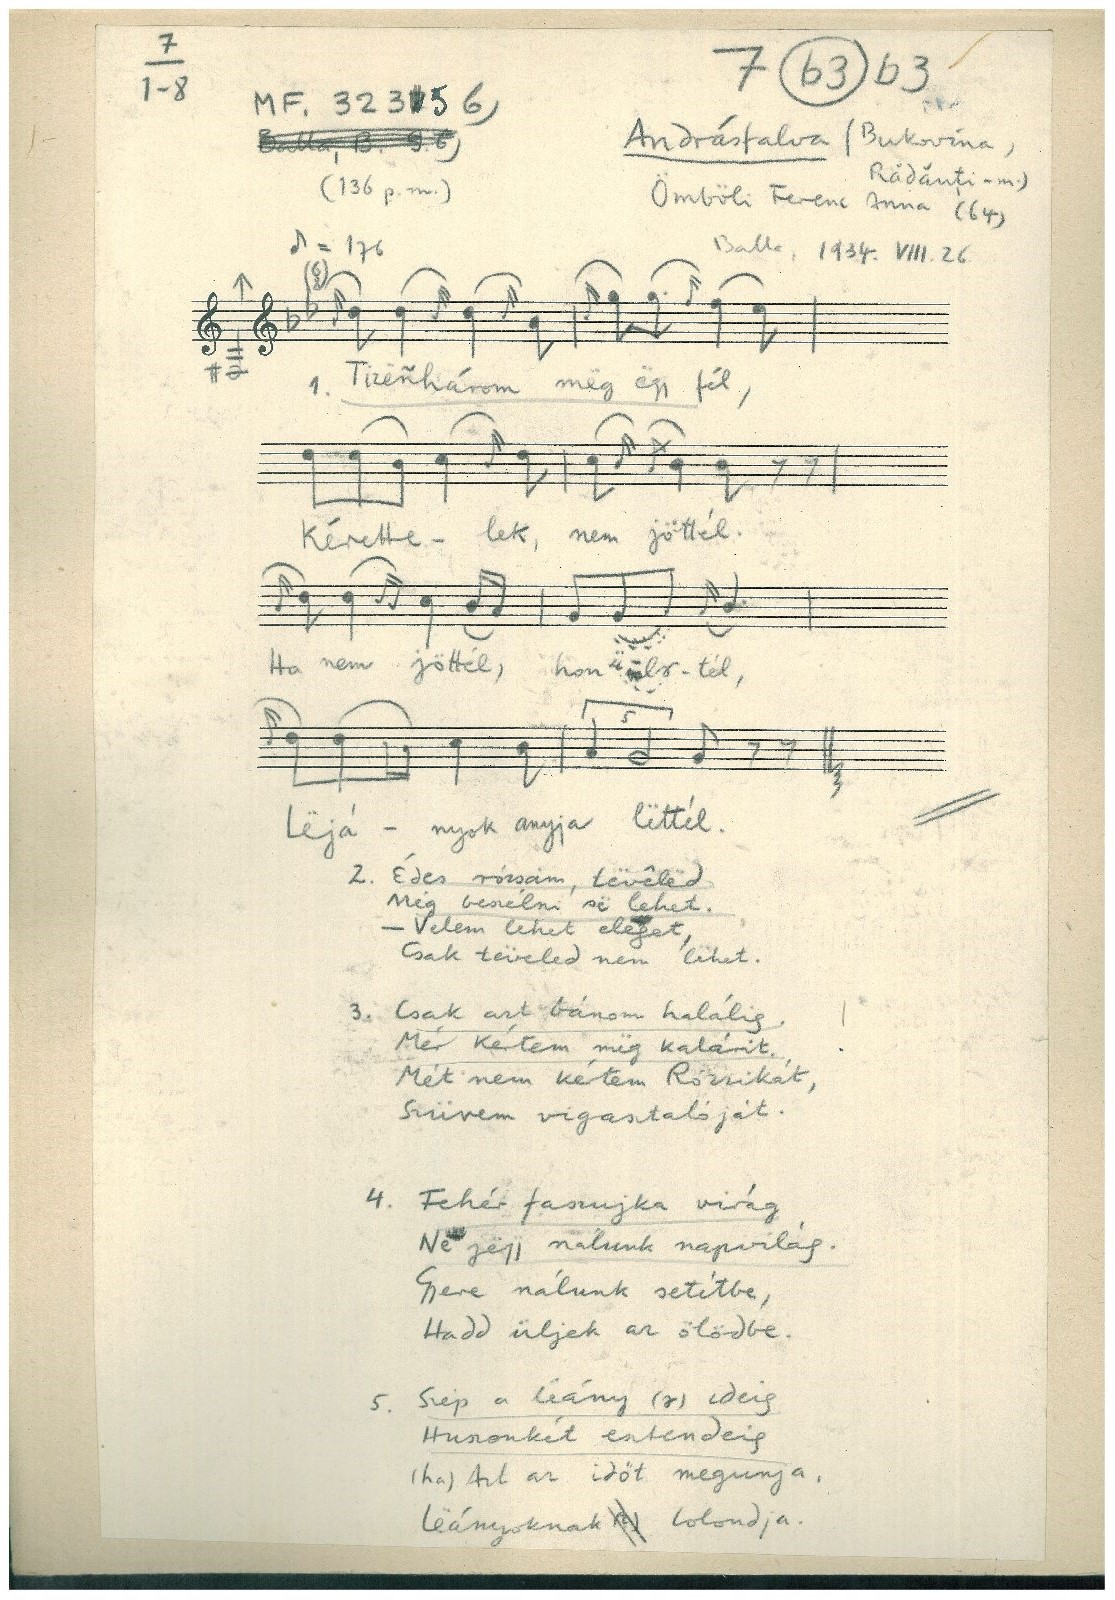 7
1-8
7 b3 b3
MF. 32356)
Balla, B. 9.6)
(136 p.m.)
Andrásfalva (Bukovina,
Rădăuți-m.)
Ömböli Ferenc Anna (64)
Balla, 1934. VIII. 26
♪ = 176
1. Tizëñhárom mëg ëgy fél,
Kérette- lek, nem jöttél.
Ha nem jöttél, hon tél,
5
Lëjá - nyok anyja lëttél.
2. Édes rózsám, tëvêlëd
Még beszélni së lehet.
– Velem lehet eleget,
Csak tëveled nem lehet.
3. Csak azt bánom halálig,
Mér kértem mëg kalárit.
Mét nem kértem Rózsikát,
Szüvem vigasztalóját.
4. Fehér faszujka virág
Në jëjj nálunk napvilág.
Gyere nálunk setítbe,
Hadd üljek az ölödbe.
5. Szép a lëány (r) ideig
Huszonkét esztendeig
(ha) Azt az időt megunja,
Lëányoknak bolondja.